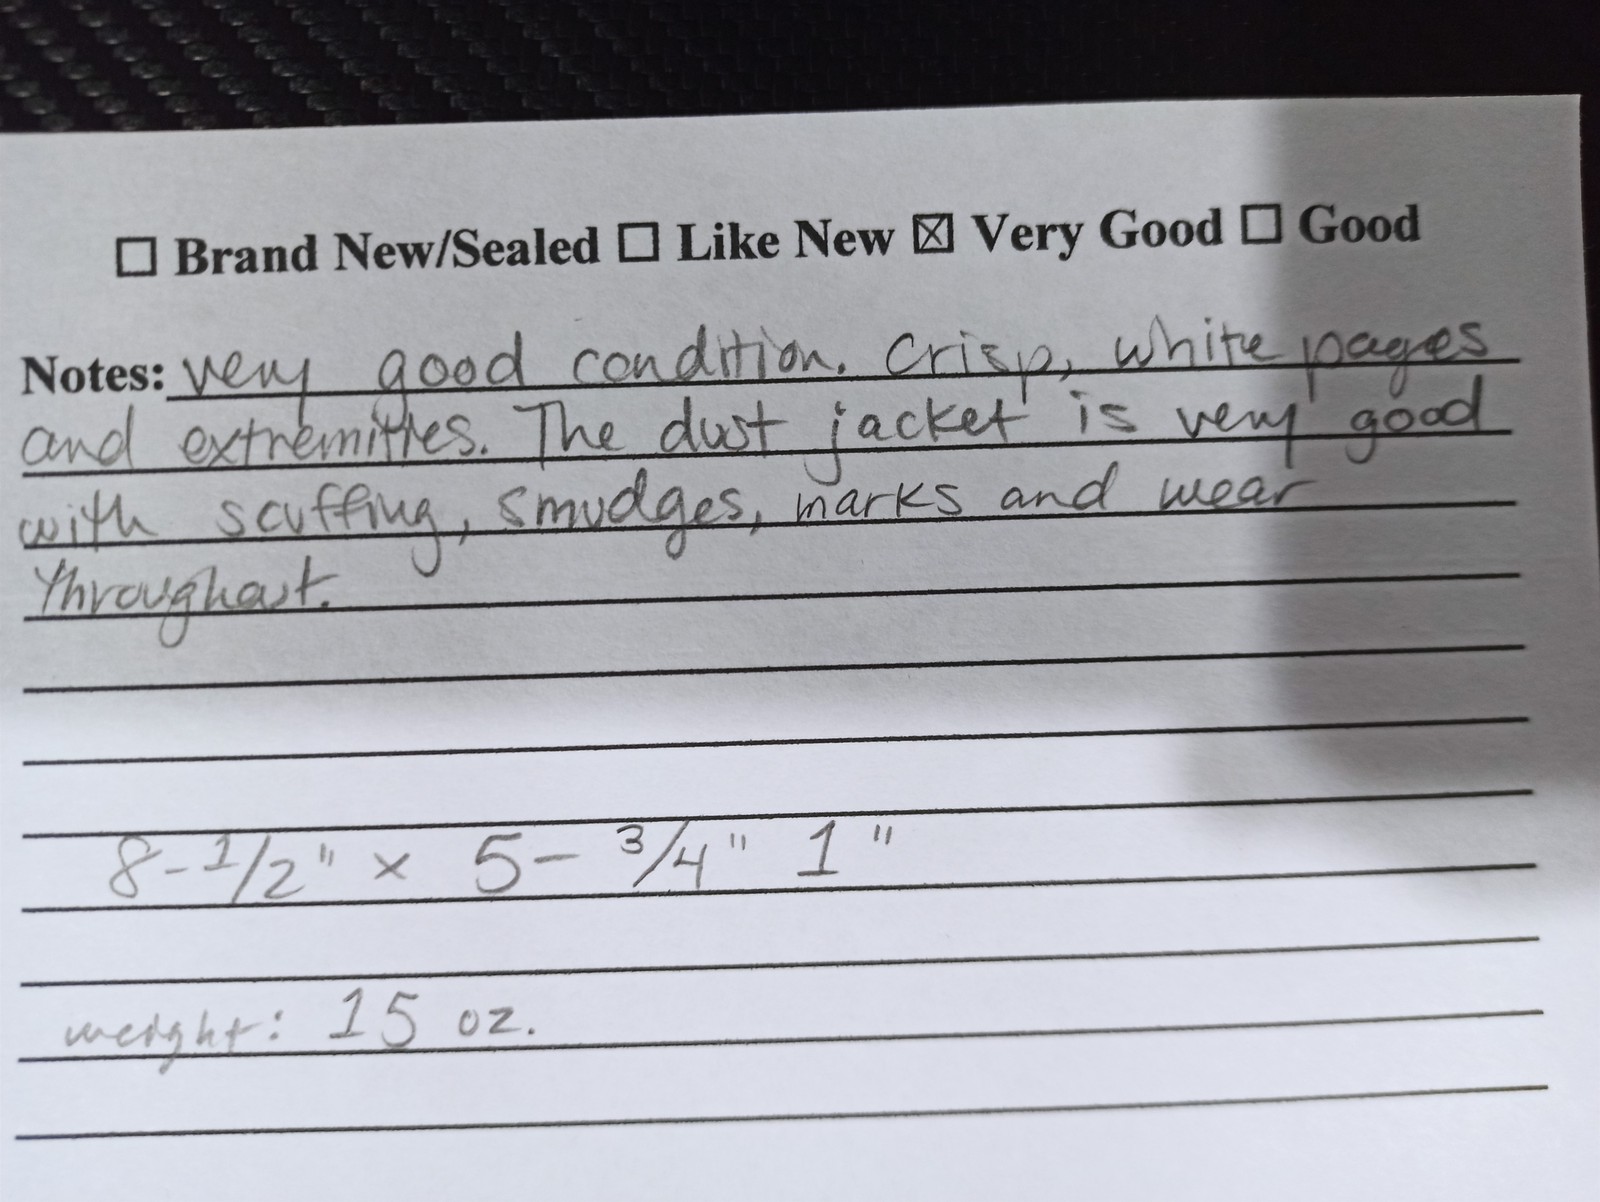 ☐ Brand New/Sealed ☐ Like New ☒ Very Good ☐ Good
Notes: very good condition. Crisp, white pages
and extremities. The dust jacket is very good
with scuffing, smudges, marks and wear
throughout.
8-1/2" x 5-3/4" 1"
weight: 15 oz.